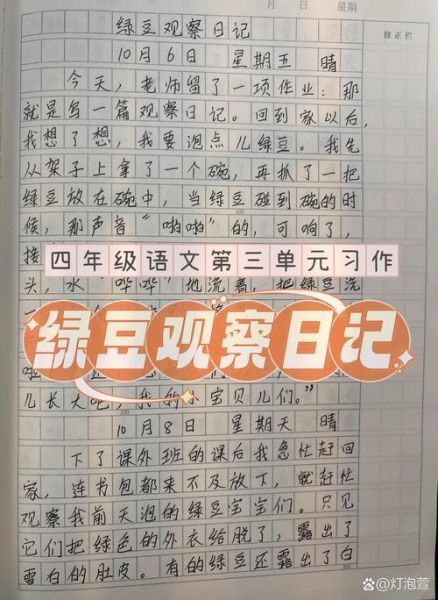 月 日 星期
修正栏
绿豆观察日记
10月6日 星期五 晴
今天,老师留了一项作业:那
就是写一篇观察日记。回到家以后,
我想了想,我要泡点儿绿豆。我先
从架子上拿了一个碗,再抓了一把
绿豆放在碗中,当绿豆碰到碗的时
候,那声音“啪啪”的,可响了,
接
四年级语文第三单元习作
头,水“哗哗”地流着,把绿豆洗
绿豆观察日记
儿长大吧,我的小宝贝儿们。”
10月8日 星期天 晴
下了课外班的课后我急忙赶回
家,连书包都来不及放下,就赶忙
观察我前天泡的绿豆宝宝们。只见
它们把绿色的外衣给脱了,露出了
雪白的肚皮。有的绿豆还露出了白
@灯泡萱